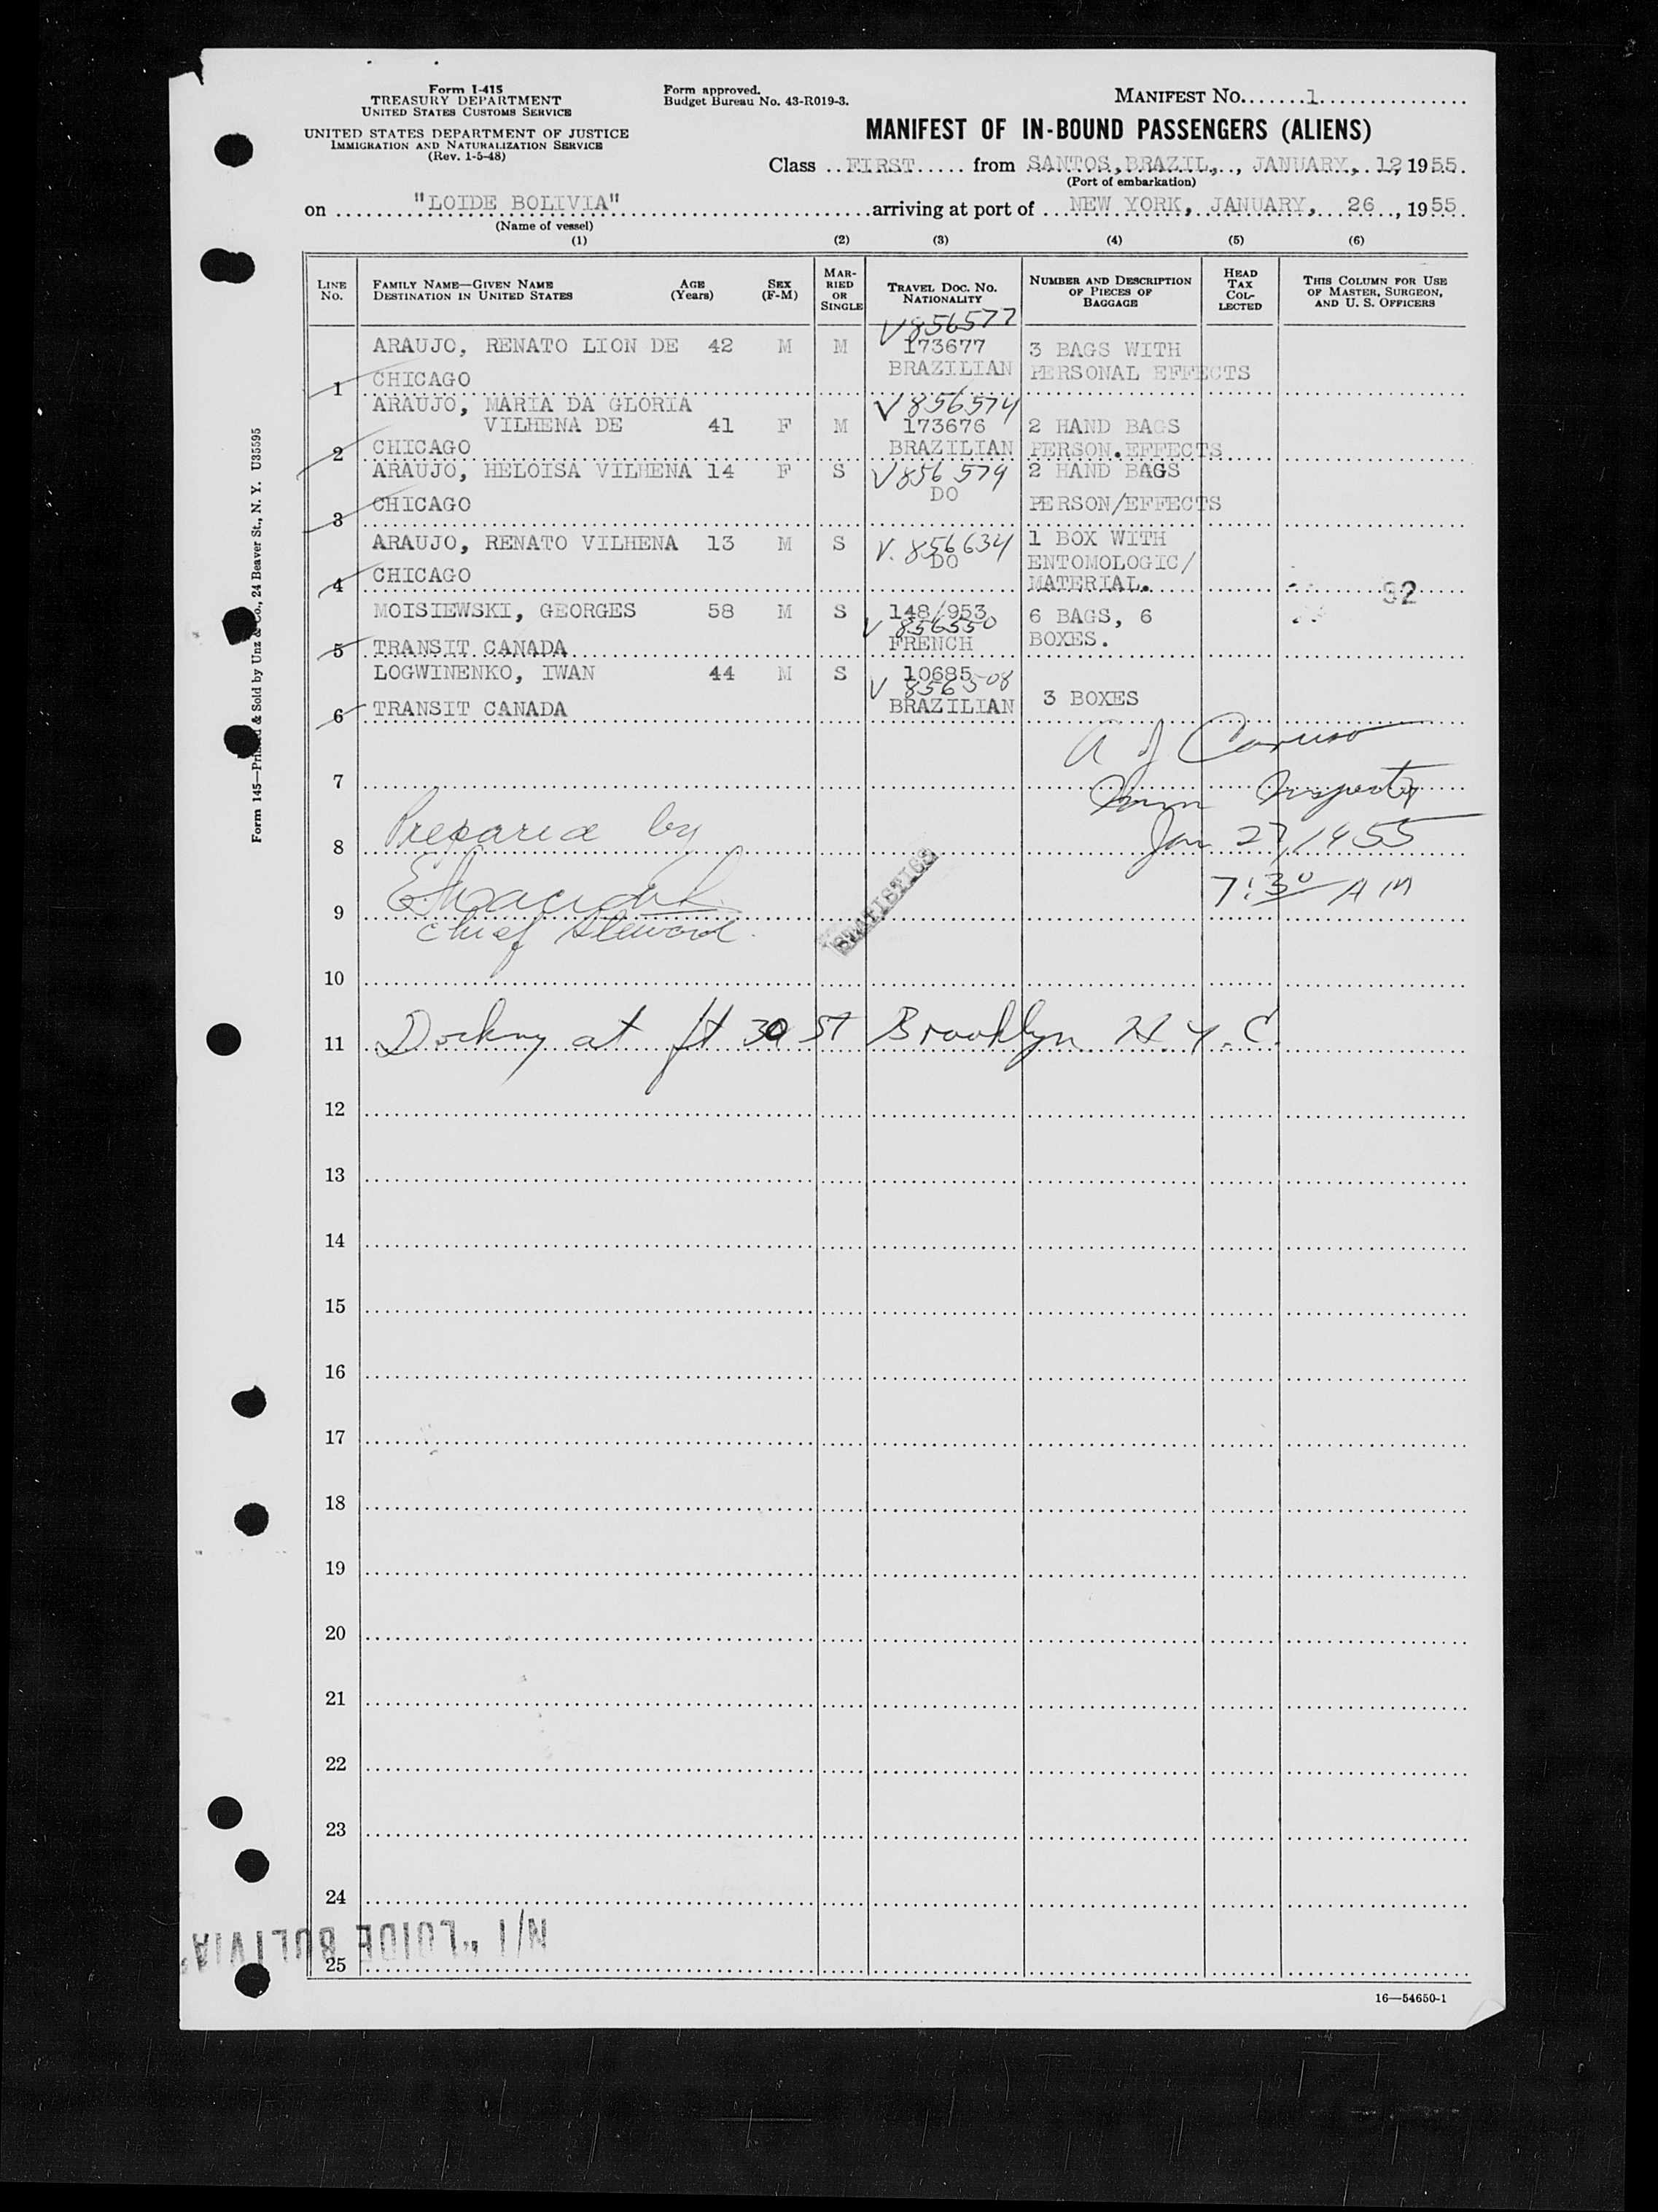 Form I-415
TREASURY DEPARTMENT
UNITED STATES CUSTOMS SERVICE
UNITED STATES DEPARTMENT OF JUSTICE
IMMIGRATION AND NATURALIZATION SERVICE
(Rev. 1-5-48)
Form approved.
Budget Bureau No. 43-R019-3.
MANIFEST NO.......1...............
MANIFEST OF IN-BOUND PASSENGERS (ALIENS)
Class ..FIRST..... from SANTOS,BRAZIL,.., JANUARY, 12, 1955.
(Port of embarkation)
on "LOIDE BOLIVIA" arriving at port of NEW YORK, JANUARY, 26, 1955.
(Name of vessel)
(1) (2) (3) (4) (5) (6)
LINE No. FAMILY NAME—GIVEN NAME DESTINATION IN UNITED STATES AGE (Years) SEX (F-M) MARRIED OR SINGLE TRAVEL DOC. NO. NATIONALITY NUMBER AND DESCRIPTION OF PIECES OF BAGGAGE HEAD TAX COLLECTED THIS COLUMN FOR USE OF MASTER, SURGEON, AND U. S. OFFICERS
V856577
ARAUJO, RENATO LION DE 42 M M 173677 3 BAGS WITH
1 CHICAGO BRAZILIAN PERSONAL EFFECTS
ARAUJO, MARIA DA GLORIA V856574
VILHENA DE 41 F M 173676 2 HAND BAGS
2 CHICAGO BRAZILIAN PERSON.EFFECTS
ARAUJO, HELOISA VILHENA 14 F S V856 579 2 HAND BAGS
DO
3 CHICAGO PERSON/EFFECTS
ARAUJO, RENATO VILHENA 13 M S V. 856634 1 BOX WITH
DO ENTOMOLOGIC/
4 CHICAGO MATERIAL. 92
MOISIEWSKI, GEORGES 58 M S 148/953 6 BAGS, 6
V 856550
5 TRANSIT CANADA FRENCH BOXES.
LOGWINENKO, IWAN 44 M S 10685
V 856508
6 TRANSIT CANADA BRAZILIAN 3 BOXES
A J Caruso
7 Imm Inspector
8 Prepared by Jan 27, 1955
7:30 AM
9
Chief Steward.
STATISTICS
10
11 Docking at ft 30 ST Brooklyn N.Y.C.
12
13
14
15
16
17
18
19
20
21
22
23
24
N/T "LOIDE BOLIVIA"
25
16—54650-1
Form 145—Printed & Sold by Unz & Co., 24 Beaver St., N. Y. U35595